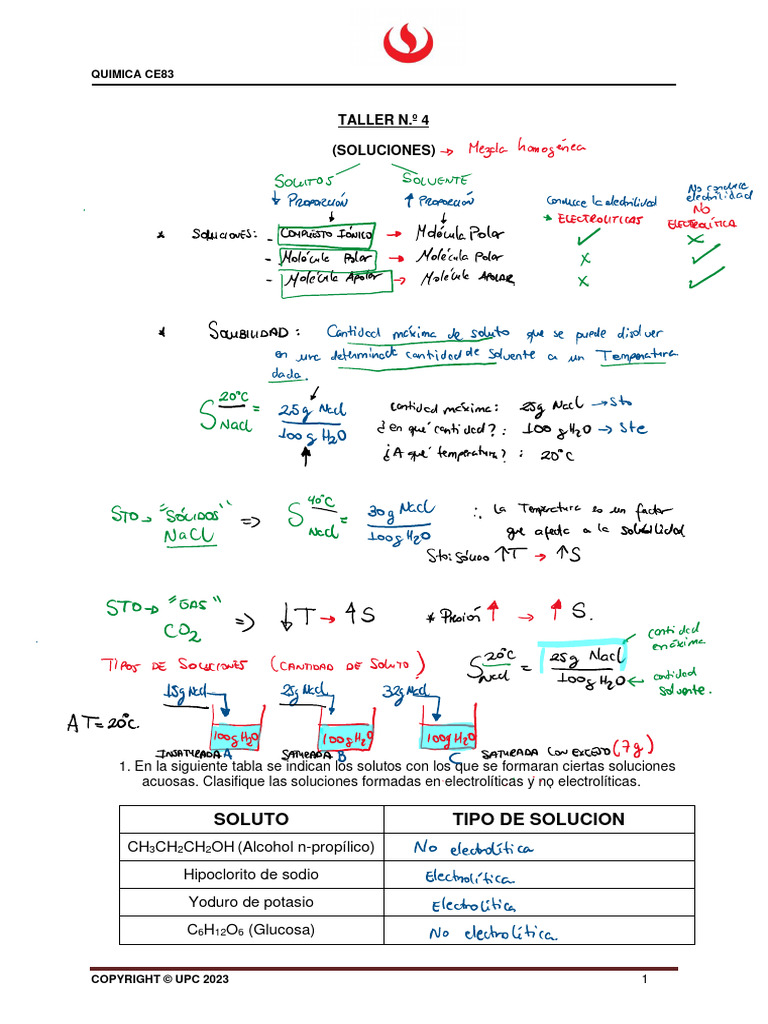 QUIMICA CE83
TALLER N.º 4
(SOLUCIONES) → Mezcla homogénea
SOLUTOS SOLVENTE
↓ PROPORCIÓN ↑ PROPORCIÓN
Conduce la electricidad
→ ELECTROLITICAS
No conduce
electricidad
NO
ELECTROLÍTICA
* SOLUCIONES: - COMPUESTO IÓNICO → Molécula Polar ✓ ×
- Molécula Polar → Molécula Polar × ✓
- Molécula Apolar → Molécula APOLAR × ✓
* SOLUBILIDAD: Cantidad máxima de soluto que se puede disolver
en una determinada cantidad de solvente a un Temperatura
dada.
S 20°C NaCl = 25g NaCl / 100g H2O
cantidad máxima: 25g NaCl → Sto
¿en qué cantidad?: 100g H2O → Ste
¿A qué temperatura?: 20°C
STO → "SÓLIDOS" NaCl => S 40°C NaCl = 30g NaCl / 100g H2O
∴ La Temperatura es un factor
que afecta a la solubilidad
Sto: Sólido ↑T → ↑S
STO → "GAS" CO2 => ↓T → ↑S * Presión ↑ → ↑ S.
TIPOS DE SOLUCIONES (CANTIDAD DE SOLUTO)
S 20°C NaCl = 25g NaCl / 100g H2O
cantidad máxima
cantidad solvente.
15g NaCl 25g NaCl 32g NaCl
A T=20°C.
100g H2O 100g H2O 100g H2O
INSATURADA A SATURADA B C SATURADA CON EXCESO (7g)
1. En la siguiente tabla se indican los solutos con los que se formaran ciertas soluciones
acuosas. Clasifique las soluciones formadas en electrolíticas y no electrolíticas.
SOLUTO TIPO DE SOLUCION
CH3CH2CH2OH (Alcohol n-propílico) No electrolítica
Hipoclorito de sodio Electrolítica
Yoduro de potasio Electrolítica
C6H12O6 (Glucosa) No electrolítica.
COPYRIGHT © UPC 2023 1